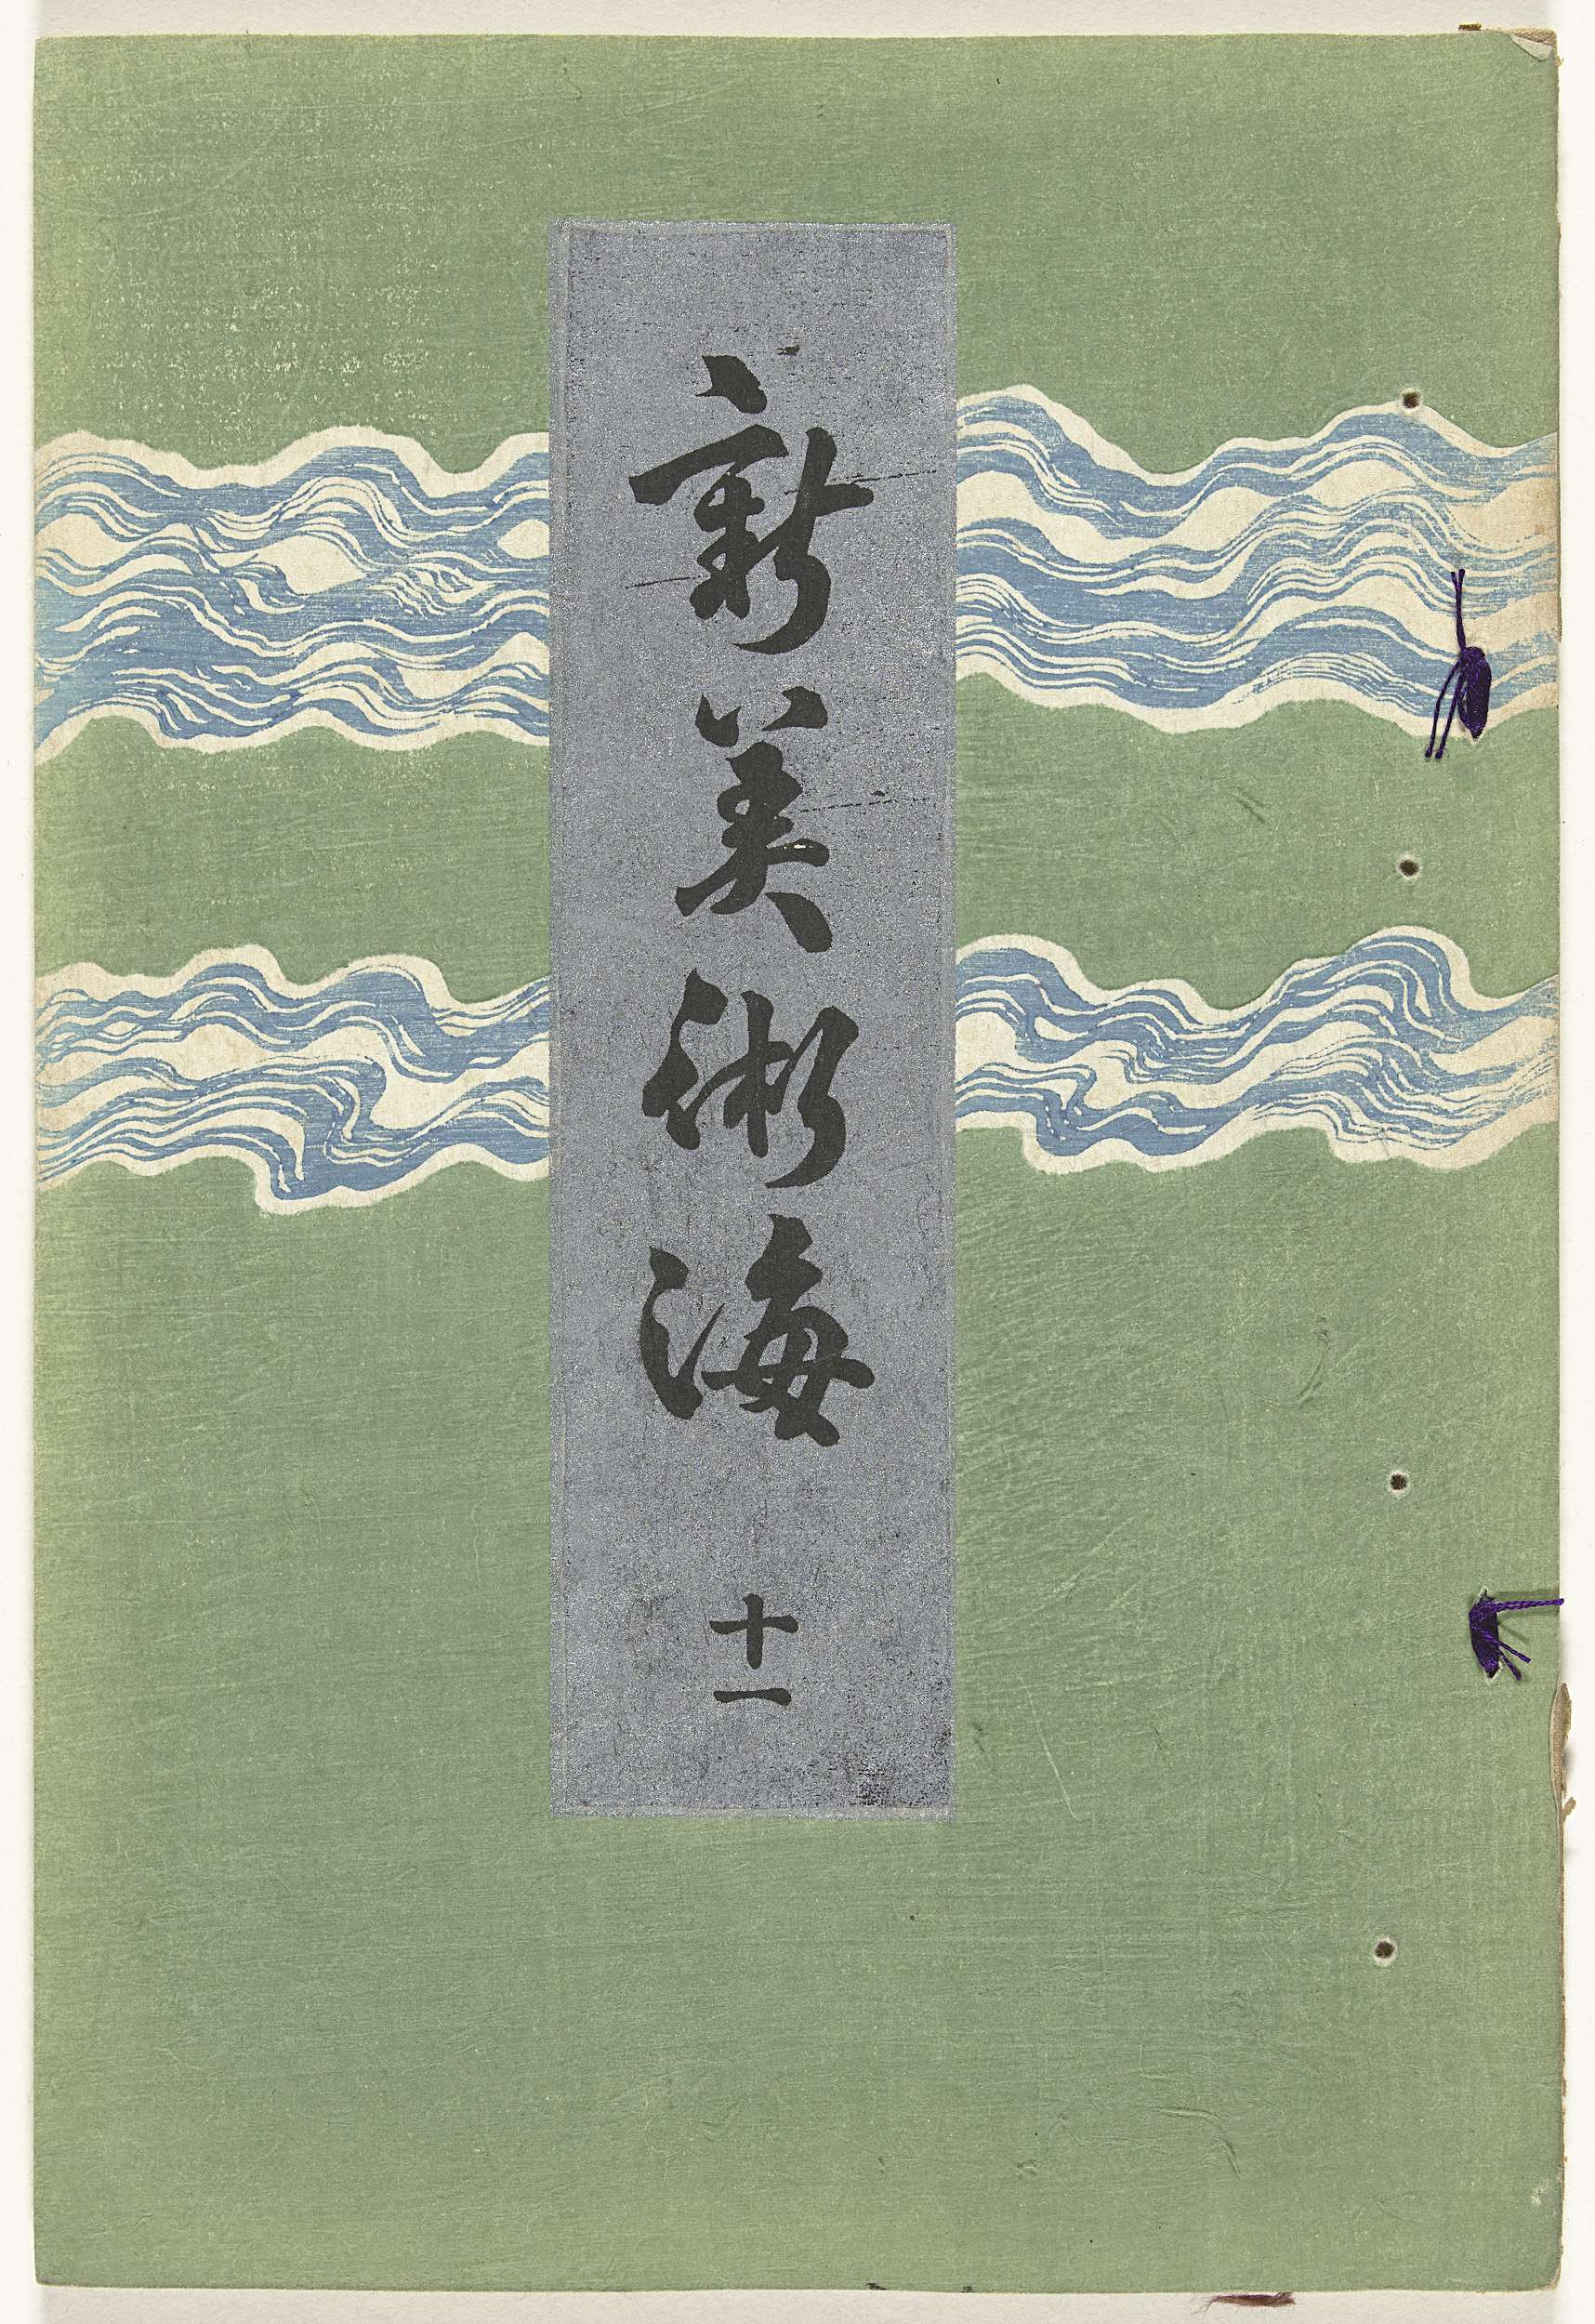 新美術海
十一